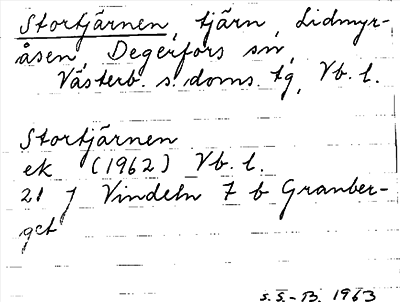 Stortjärnen, tjärn, Lidmyr-
åsen, Degerfors sn,
Västerb. s. doms. tg, Vb. l.
Stortjärnen
ek (1962) Vb. l.
21 J Vindeln 7 b Granber-
get
S. S.-B. 1963